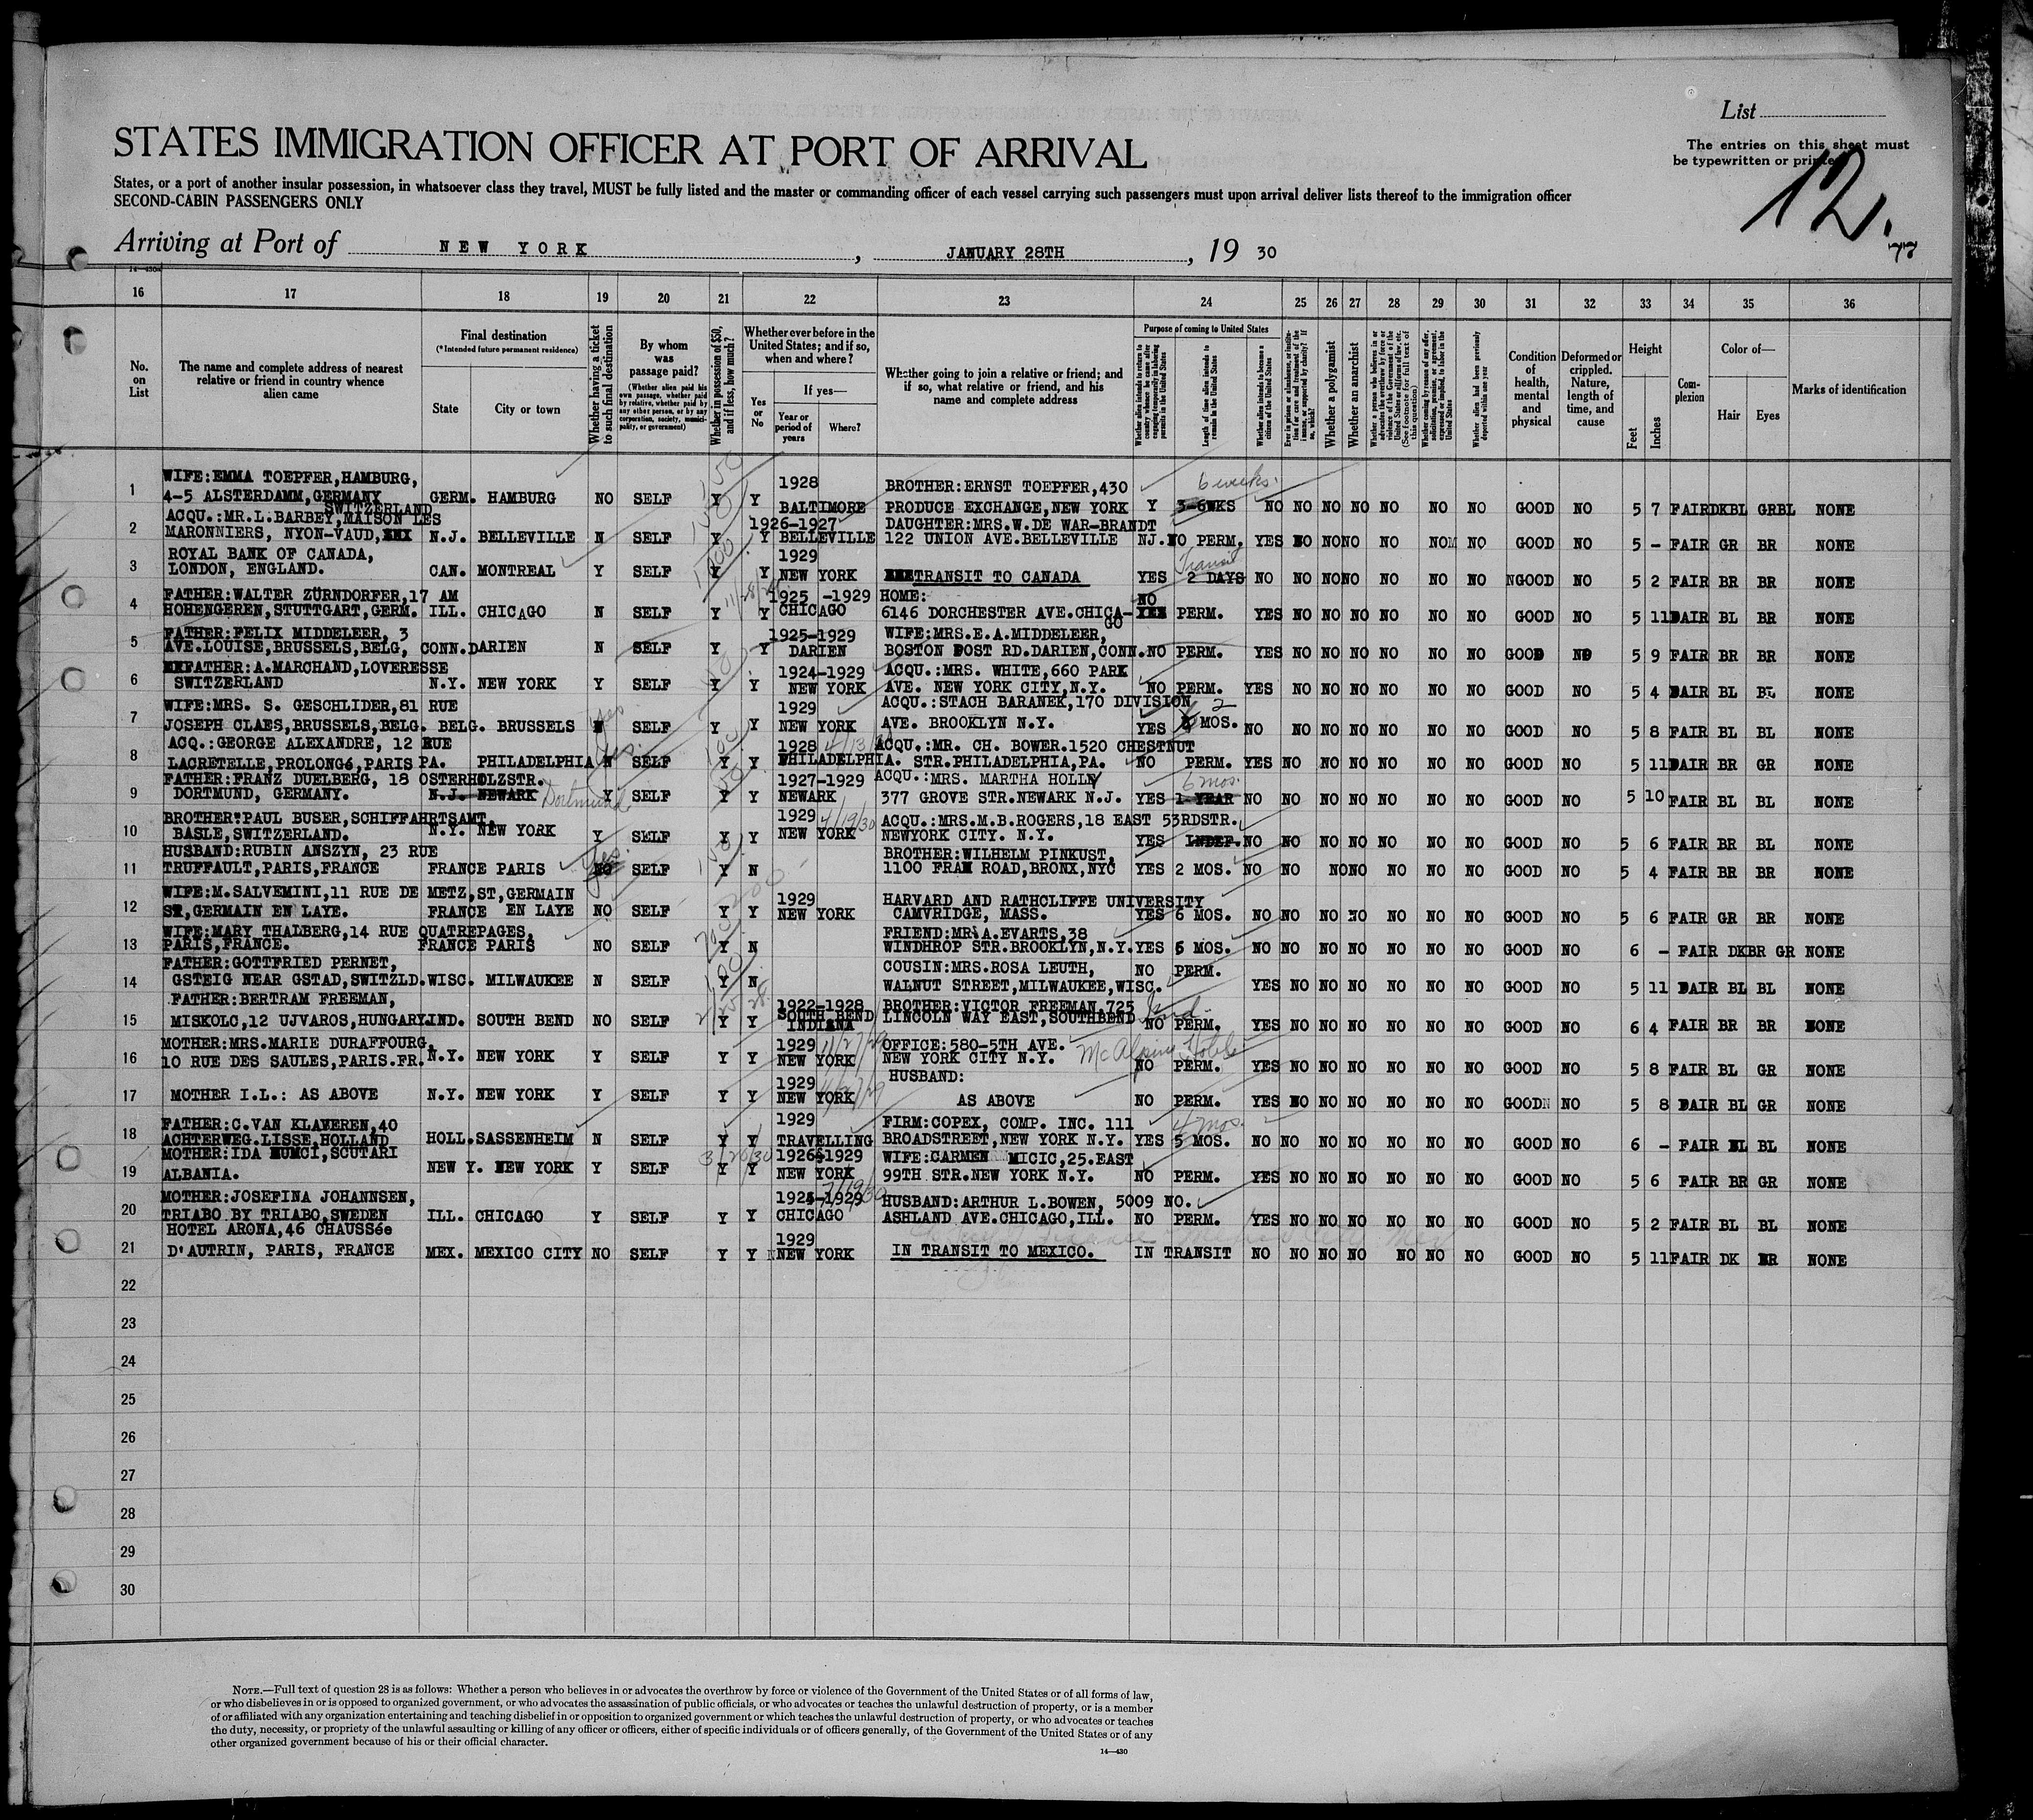 List
The entries on this sheet must
be typewritten or printed
12.
77
STATES IMMIGRATION OFFICER AT PORT OF ARRIVAL
States, or a port of another insular possession, in whatsoever class they travel, MUST be fully listed and the master or commanding officer of each vessel carrying such passengers must upon arrival deliver lists thereof to the immigration officer
SECOND-CABIN PASSENGERS ONLY
Arriving at Port of NEW YORK, JANUARY 28TH, 19 30
16 17 18 19 20 21 22 23 24 25 26 27 28 29 30 31 32 33 34 35 36
No. on List
The name and complete address of nearest relative or friend in country whence alien came
Final destination
(*Intended future permanent residence)
State
City or town
Whether having a ticket to such final destination
By whom was passage paid?
(Whether alien paid his own passage, whether paid by relative, whether paid by any other person, or by any corporation, society, municipality, or government)
Whether in possession of $50, and if less, how much?
Whether ever before in the United States; and if so, when and where?
Yes or No
If yes—
Year or period of years
Where?
Whether going to join a relative or friend; and if so, what relative or friend, and his name and complete address
Purpose of coming to United States
Whether alien intends to return to country whence he came after engaging temporarily in laboring pursuits in the United States
Length of time alien intends to remain in the United States
Whether alien intends to become a citizen of the United States
Ever in prison or almshouse, or institution for care and treatment of the insane, or supported by charity? If so, which?
Whether a polygamist
Whether an anarchist
Whether a person who believes in or advocates the overthrow by force or violence of the Government of the United States or all forms of law, etc. (See footnote for full text of this question)
Whether coming by reason of any offer, solicitation, promise, or agreement, expressed or implied, to labor in the United States
Whether alien had been previously deported within one year
Condition of health, mental and physical
Deformed or crippled. Nature, length of time, and cause
Height
Feet
Inches
Complexion
Color of—
Hair
Eyes
Marks of identification
1 WIFE:EMMA TOEPFER,HAMBURG, 1928 BROTHER:ERNST TOEPFER,430 6 weeks.
4-5 ALSTERDAMM,GERMANY GERM. HAMBURG NO SELF Y Y BALTIMORE PRODUCE EXCHANGE,NEW YORK Y 3-6WKS NO NO NO NO NO NO NO GOOD NO 5 7 FAIR DKBL GRBL NONE
SWITZERLAND
2 ACQU.:MR.L.BARBEY,MAISON LES 1926-1927 DAUGHTER:MRS.W.DE WAR-BRANDT
MARONNIERS, NYON-VAUD, N.J. BELLEVILLE N SELF Y Y BELLEVILLE 122 UNION AVE.BELLEVILLE NJ. NO PERM. YES NO NO NO NO NO NO GOOD NO 5 - FAIR GR BR NONE
3 ROYAL BANK OF CANADA, 1929 Transit
LONDON, ENGLAND. CAN. MONTREAL Y SELF Y Y NEW YORK TRANSIT TO CANADA YES 2 DAYS NO NO NO NO NO NO NO GOOD NO 5 2 FAIR BR BR NONE
4 FATHER:WALTER ZÜRNDORFER,17 AM 1925 -1929 HOME: NO
HOHENGEREN,STUTTGART,GERM. ILL. CHICAGO N SELF Y Y CHICAGO 6146 DORCHESTER AVE.CHICA-GO PERM. YES NO NO NO NO NO NO GOOD NO 5 11 DAIR BL BR NONE
5 FATHER:FELIX MIDDELEER, 3 1925-1929 WIFE:MRS.E.A.MIDDELEER,
AVE.LOUISE,BRUSSELS,BELG, CONN.DARIEN N SELF Y Y DARIEN BOSTON POST RD.DARIEN,CONN. NO PERM. YES NO NO NO NO NO NO GOOD NO 5 9 FAIR BR BR NONE
6 FATHER:A.MARCHAND,LOVERESSE 1924-1929 ACQU.:MRS. WHITE,660 PARK
SWITZERLAND N.Y. NEW YORK Y SELF Y Y NEW YORK AVE. NEW YORK CITY,N.Y. NO PERM. YES NO NO NO NO NO NO GOOD NO 5 4 DAIR BL BL NONE
7 WIFE:MRS. S. GESCHLIDER,81 RUE Yes 1929 ACQU.:STACH BARANEK,170 DIVISION 2
JOSEPH CLAES,BRUSSELS,BELG. BELG. BRUSSELS SELF Y Y NEW YORK AVE. BROOKLYN N.Y. YES MOS. NO NO NO NO NO NO NO GOOD NO 5 8 FAIR BL BL NONE
8 ACQ.:GEORGE ALEXANDRE, 12 RUE Yes. 1928 ACQU.:MR. CH. BOWER.1520 CHESTNUT
LACRETELLE,PROLONGé,PARIS PA. PHILADELPHIA N SELF Y Y PHILADELPHIA. STR.PHILADELPHIA,PA. NO PERM. YES NO NO NO NO NO NO GOOD NO 5 11 DAIR BR GR NONE
9 FATHER:FRANZ DUELBERG, 18 OSTERHOLZSTR. 1927-1929 ACQU.:MRS. MARTHA HOLLY 6 mos.
DORTMUND, GERMANY. N.J. NEWARK Dortmund Y SELF Y Y NEWARK 377 GROVE STR.NEWARK N.J. YES 1 YEAR NO NO NO NO NO NO NO GOOD NO 5 10 FAIR BL BL NONE
10 BROTHER:PAUL BUSER,SCHIFFAHRTSAMT, 1929 4/19/30 ACQU.:MRS.M.B.ROGERS,18 EAST 53RDSTR.
BASLE,SWITZERLAND. N.Y. NEW YORK Y SELF Y Y NEW YORK NEWYORK CITY. N.Y. YES INDEF. NO NO NO NO NO NO NO GOOD NO 5 6 FAIR BR BL NONE
11 HUSBAND:RUBIN ANSZYN, 23 RUE Yes. BROTHER:WILHELM PINKUST,
TRUFFAULT,PARIS,FRANCE FRANCE PARIS NO SELF Y N 1100 FRAM ROAD,BRONX,NYC YES 2 MOS. NO NO NO NO NO NO NO GOOD NO 5 4 FAIR BR BR NONE
12 WIFE:M.SALVEMINI,11 RUE DE METZ,ST,GERMAIN 1929 HARVARD AND RATHCLIFFE UNIVERSITY
ST,GERMAIN EN LAYE. FRANCE EN LAYE NO SELF Y Y NEW YORK CAMVRIDGE, MASS. YES 6 MOS. NO NO NO NO NO NO NO GOOD NO 5 6 FAIR GR BR NONE
13 WIFE:MARY THALBERG,14 RUE QUATREPAGES, FRIEND:MR.A.EVARTS,38
PARIS,FRANCE. FRANCE PARIS NO SELF Y N WINDHROP STR.BROOKLYN,N.Y. YES 6 MOS. NO NO NO NO NO NO NO GOOD NO 6 - FAIR DKBR GR NONE
14 FATHER:GOTTFRIED PERNET, COUSIN:MRS.ROSA LEUTH, NO PERM.
GSTEIG NEAR GSTAD,SWITZLD. WISC. MILWAUKEE N SELF Y N WALNUT STREET,MILWAUKEE,WISC. YES NO NO NO NO NO NO GOOD NO 5 11 DAIR BL BL NONE
15 FATHER:BERTRAM FREEMAN, 1922-1928 BROTHER:VICTOR FREEMAN,725
MISKOLC,12 UJVAROS,HUNGARY. IND. SOUTH BEND NO SELF Y Y SOUTH BEND INDIANA LINCOLN WAY EAST,SOUTHBEND Ind. NO PERM. YES NO NO NO NO NO NO GOOD NO 6 4 FAIR BR BR NONE
16 MOTHER:MRS.MARIE DURAFFOURG, 1929 11/27/29 OFFICE:580-5TH AVE.
10 RUE DES SAULES,PARIS.FR. N.Y. NEW YORK Y SELF Y Y NEW YORK NEW YORK CITY N.Y. McAlpine Hotel NO PERM. YES NO NO NO NO NO NO GOOD NO 5 8 FAIR BL GR NONE
17 1929 11/27/29 HUSBAND:
MOTHER I.L.: AS ABOVE N.Y. NEW YORK Y SELF Y Y NEW YORK AS ABOVE NO PERM. YES NO NO NO NO NO NO GOOD NO 5 8 DAIR BL GR NONE
18 FATHER:C.VAN KLAVEREN,40 1929 FIRM:COPEX, COMP. INC. 111 4 mos.
ACHTERWEG.LISSE,HOLLAND HOLL.SASSENHEIM N SELF Y Y TRAVELLING BROADSTREET,NEW YORK N.Y. YES 5 MOS. NO NO NO NO NO NO NO GOOD NO 6 - FAIR BL BL NONE
19 MOTHER:IDA MUMCI,SCUTARI 3/20/30 1926-1929 WIFE:CARMEN MICIC,25.EAST
ALBANIA. NEW Y. NEW YORK Y SELF Y Y NEW YORK 99TH STR.NEW YORK N.Y. NO PERM. YES NO NO NO NO NO NO GOOD NO 5 6 FAIR BR GR NONE
20 MOTHER:JOSEFINA JOHANNSEN, 1924-1929 HUSBAND:ARTHUR L.BOWEN, 5009 NO.
TRIABO BY TRIABO,SWEDEN ILL. CHICAGO Y SELF Y Y CHICAGO ASHLAND AVE.CHICAGO,ILL. NO PERM. YES NO NO NO NO NO NO GOOD NO 5 2 FAIR BL BL NONE
21 HOTEL ARONA,46 CHAUSSée 1929
D'AUTRIN, PARIS, FRANCE MEX. MEXICO CITY NO SELF Y Y NEW YORK IN TRANSIT TO MEXICO. IN TRANSIT NO NO NO NO NO NO NO GOOD NO 5 11 FAIR DK BR NONE
22
23
24
25
26
27
28
29
30
NOTE.—Full text of question 28 is as follows: Whether a person who believes in or advocates the overthrow by force or violence of the Government of the United States or of all forms of law,
or who disbelieves in or is opposed to organized government, or who advocates the assassination of public officials, or who advocates or teaches the unlawful destruction of property, or is a member
of or affiliated with any organization entertaining and teaching disbelief in or opposition to organized government or which teaches the unlawful destruction of property, or who advocates or teaches
the duty, necessity, or propriety of the unlawful assaulting or killing of any officer or officers, either of specific individuals or of officers generally, of the Government of the United States or of any
other organized government because of his or their official character.
14—430